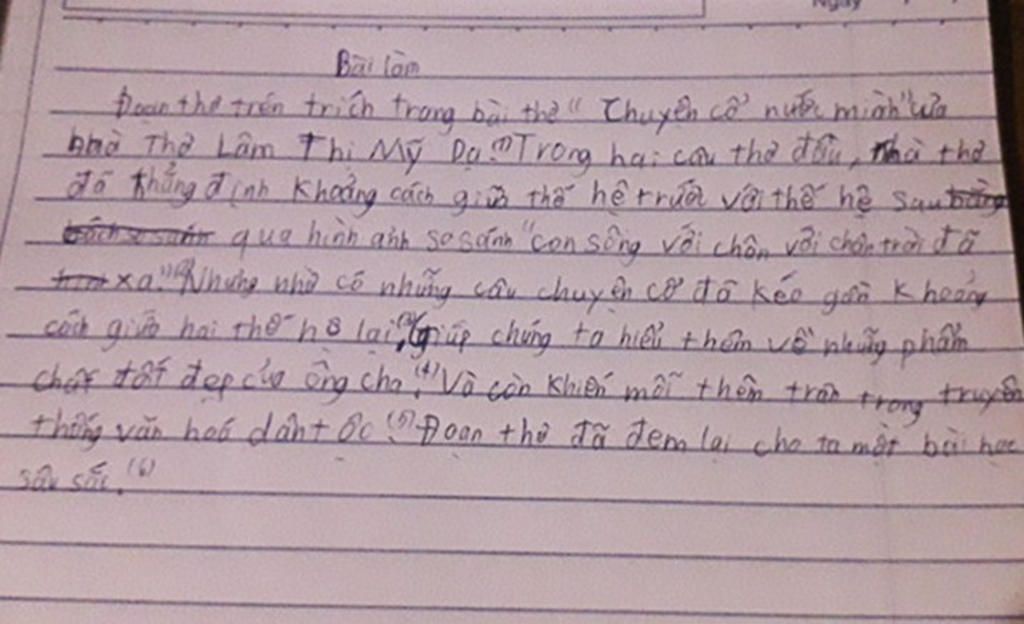 Ngày
Bài làm
Đoạn thơ trên trích trong bài thơ "Chuyện cổ nước mình" của
nhà Thơ Lâm Thị Mỹ Dạ.(1) Trong hai câu thơ đầu, nhà thơ
đã khẳng định khoảng cách giữa thế hệ trước với thế hệ sau
qua hình ảnh so sánh "con sông với chân với chân trời đã
xa".(2) Nhưng nhờ có những câu chuyện cổ đã kéo gần khoảng
cách giữa hai thế hệ lại,(3) giúp chúng ta hiểu thêm về những phẩm
chất tốt đẹp của ông cha.(4) Và còn khiến mỗi thêm trân trong truyền
thống văn hoá dânt ôc.(5) Đoạn thơ đã đem lại cho ta một bài học
sâu sắc.(6)